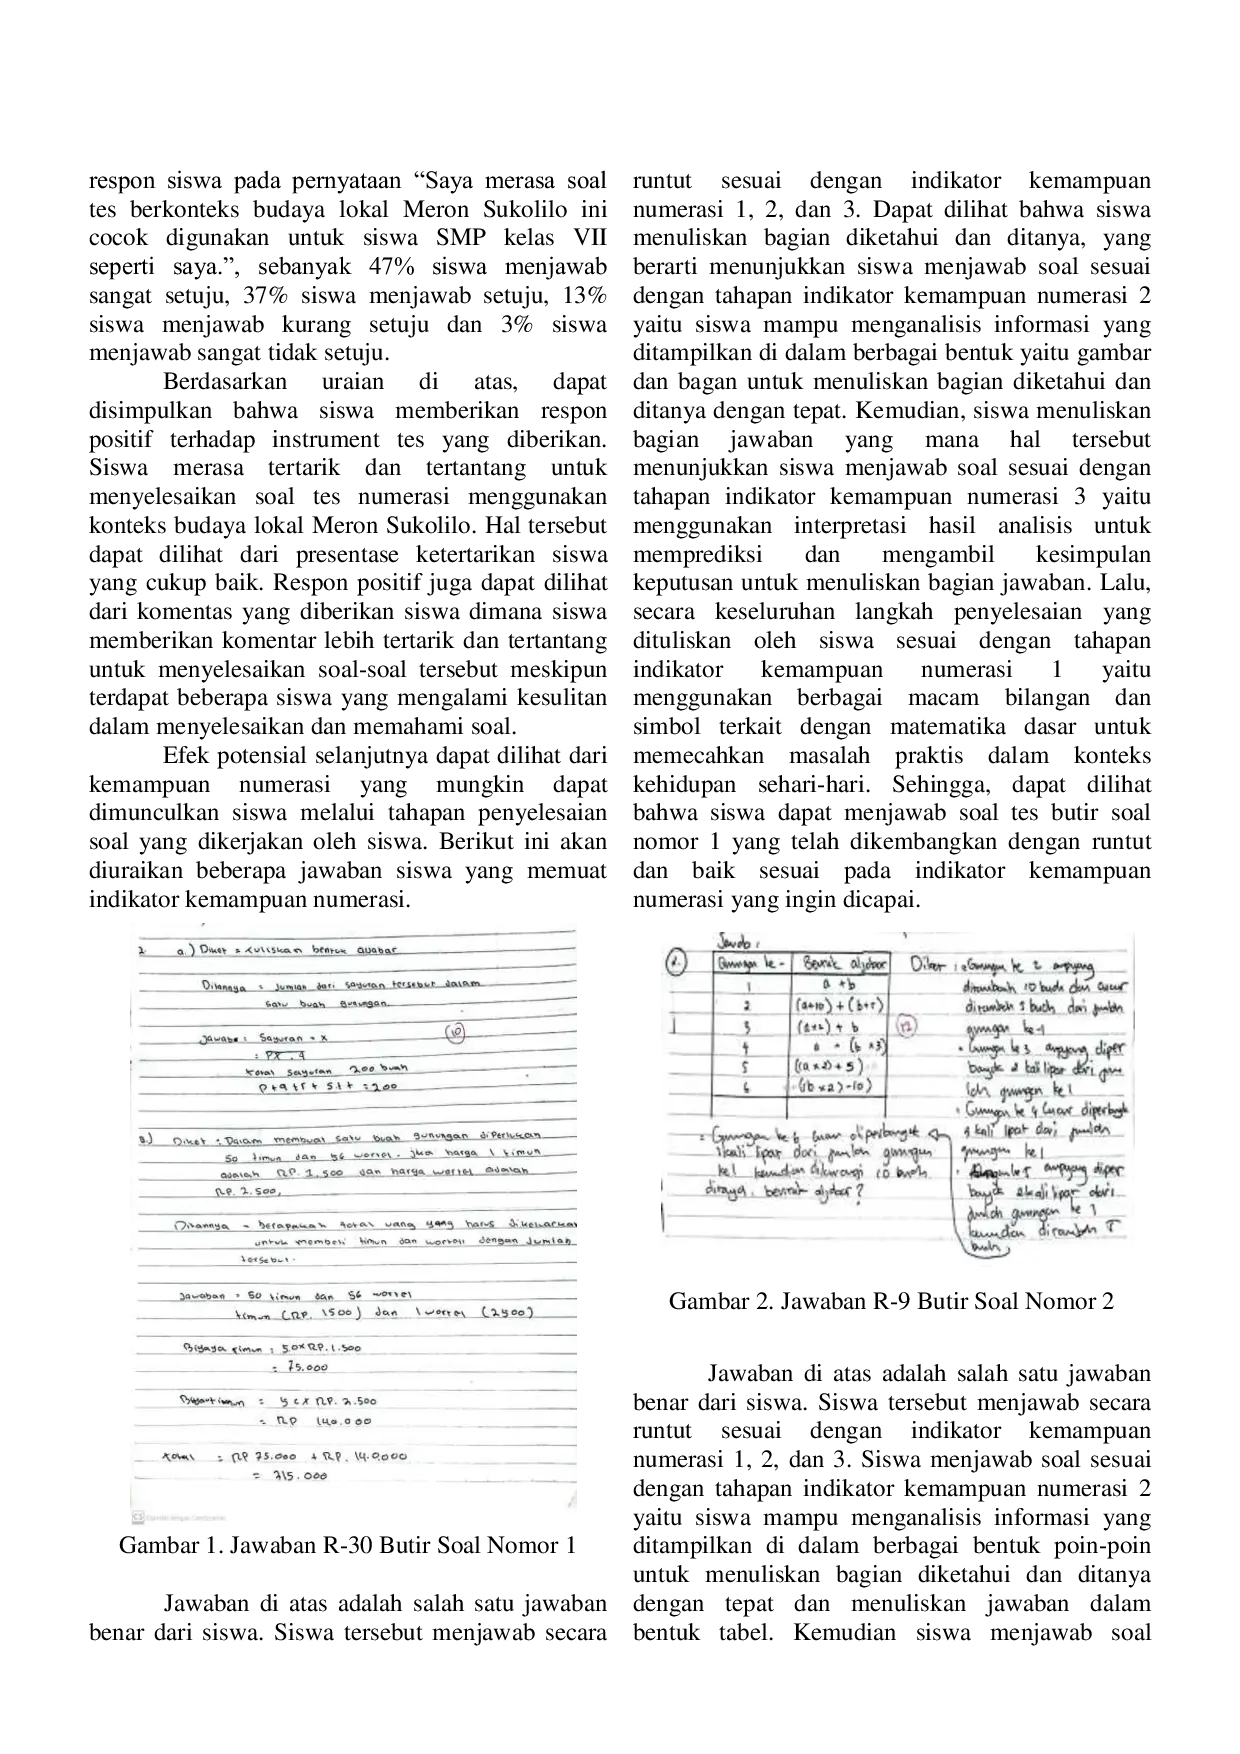 respon siswa pada pernyataan “Saya merasa soal
tes berkonteks budaya lokal Meron Sukolilo ini
cocok digunakan untuk siswa SMP kelas VII
seperti saya.”, sebanyak 47% siswa menjawab
sangat setuju, 37% siswa menjawab setuju, 13%
siswa menjawab kurang setuju dan 3% siswa
menjawab sangat tidak setuju.
Berdasarkan uraian di atas, dapat
disimpulkan bahwa siswa memberikan respon
positif terhadap instrument tes yang diberikan.
Siswa merasa tertarik dan tertantang untuk
menyelesaikan soal tes numerasi menggunakan
konteks budaya lokal Meron Sukolilo. Hal tersebut
dapat dilihat dari presentase ketertarikan siswa
yang cukup baik. Respon positif juga dapat dilihat
dari komentas yang diberikan siswa dimana siswa
memberikan komentar lebih tertarik dan tertantang
untuk menyelesaikan soal-soal tersebut meskipun
terdapat beberapa siswa yang mengalami kesulitan
dalam menyelesaikan dan memahami soal.
Efek potensial selanjutnya dapat dilihat dari
kemampuan numerasi yang mungkin dapat
dimunculkan siswa melalui tahapan penyelesaian
soal yang dikerjakan oleh siswa. Berikut ini akan
diuraikan beberapa jawaban siswa yang memuat
indikator kemampuan numerasi.
a.) Diket = tuliskan bentuk
Ditannya = Jumlah dari sayuran tersebut dalam
satu buah gunungan.
Jawab : Sayuran = x
10
total sayuran 200 buah
Diket : Dalam membuat satu buah gunungan diperlukan
50 timun dan 56 wortel. jika harga 1 timun
adalah RP. 1.500 dan harga wortel adalah
RP. 2.500,
Ditannya = berapakah total uang yang harus dikeluarkan
untuk membeli timun dan wortel dengan Jumlah
tersebut.
Jawaban = 50 timun dan 56 wortel
timun (RP. 1500) dan 1 wortel (2500)
timun : 50 x RP. 1.500
= 75.000
x RP. 2.500
= RP 140.000
total = RP 75.000 + RP. 140.000
= 215.000
Gambar 1. Jawaban R-30 Butir Soal Nomor 1
Jawaban di atas adalah salah satu jawaban
benar dari siswa. Siswa tersebut menjawab secara
runtut sesuai dengan indikator kemampuan
numerasi 1, 2, dan 3. Dapat dilihat bahwa siswa
menuliskan bagian diketahui dan ditanya, yang
berarti menunjukkan siswa menjawab soal sesuai
dengan tahapan indikator kemampuan numerasi 2
yaitu siswa mampu menganalisis informasi yang
ditampilkan di dalam berbagai bentuk yaitu gambar
dan bagan untuk menuliskan bagian diketahui dan
ditanya dengan tepat. Kemudian, siswa menuliskan
bagian jawaban yang mana hal tersebut
menunjukkan siswa menjawab soal sesuai dengan
tahapan indikator kemampuan numerasi 3 yaitu
menggunakan interpretasi hasil analisis untuk
memprediksi dan mengambil kesimpulan
keputusan untuk menuliskan bagian jawaban. Lalu,
secara keseluruhan langkah penyelesaian yang
dituliskan oleh siswa sesuai dengan tahapan
indikator kemampuan numerasi 1 yaitu
menggunakan berbagai macam bilangan dan
simbol terkait dengan matematika dasar untuk
memecahkan masalah praktis dalam konteks
kehidupan sehari-hari. Sehingga, dapat dilihat
bahwa siswa dapat menjawab soal tes butir soal
nomor 1 yang telah dikembangkan dengan runtut
dan baik sesuai pada indikator kemampuan
numerasi yang ingin dicapai.
Jawab :
Gunungan ke - Bentuk aljabar
1 a + b
2 (a+10) + (b+5)
3 (a×2) + b
4 a + (b ×3)
5 ((a ×2) + 5)
6 (b × 2) - 10)
Diket : Gunungan ke 2 ampyang
ditambah 10 buah dan cucur
ditambah 5 buah dari jumlah
gunungan ke-1
Gunungan ke 3 ampyang diper
banyak 2 kali lipat dari
gunungan ke 1
Gunungan ke 4 cucur diperbanyak
3 kali lipat dari jumlah
gunungan ke 1
ampyang diper
banyak 2 kali lipat dari
jumlah gunungan ke 1
kemudian ditambah 5
buah
Gunungan ke 6 cucur diperbanyak
kali lipat dari jumlah gunungan
ke 1 kemudian dikurangi 10 buah
ditanya. bentuk aljabar ?
Gambar 2. Jawaban R-9 Butir Soal Nomor 2
Jawaban di atas adalah salah satu jawaban
benar dari siswa. Siswa tersebut menjawab secara
runtut sesuai dengan indikator kemampuan
numerasi 1, 2, dan 3. Siswa menjawab soal sesuai
dengan tahapan indikator kemampuan numerasi 2
yaitu siswa mampu menganalisis informasi yang
ditampilkan di dalam berbagai bentuk poin-poin
untuk menuliskan bagian diketahui dan ditanya
dengan tepat dan menuliskan jawaban dalam
bentuk tabel. Kemudian siswa menjawab soal